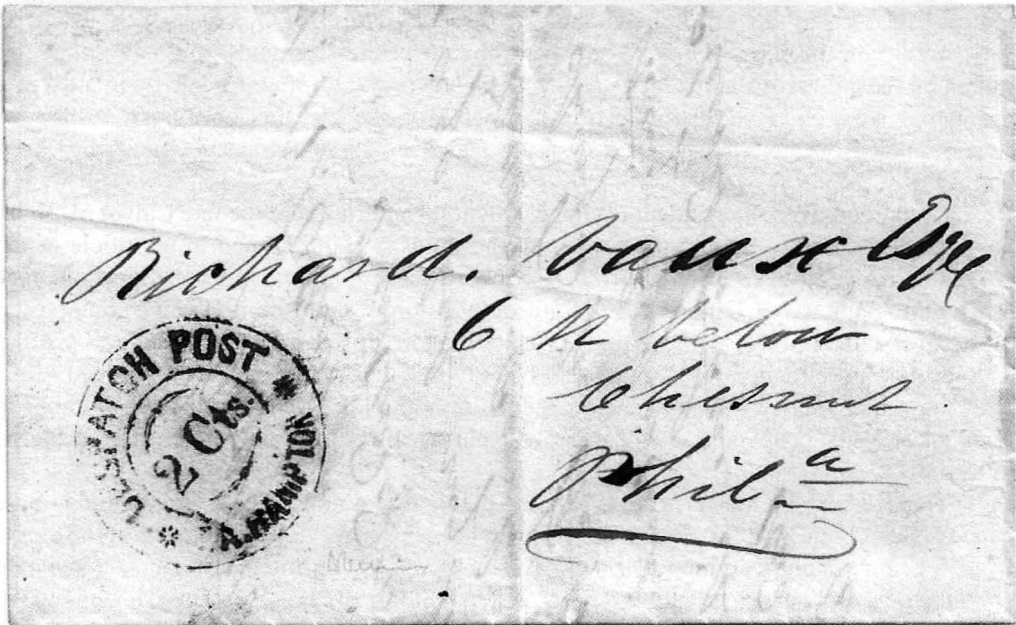 Richard. Vaux Esqe
6 th below
Chesnut
Phila
DESPATCH POST
2 Cts.
A. HAMPTON